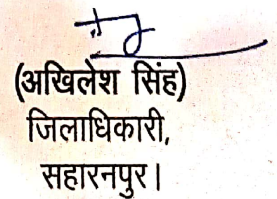 (अखिलेश सिंह)
जिलाधिकारी,
सहारनपुर।